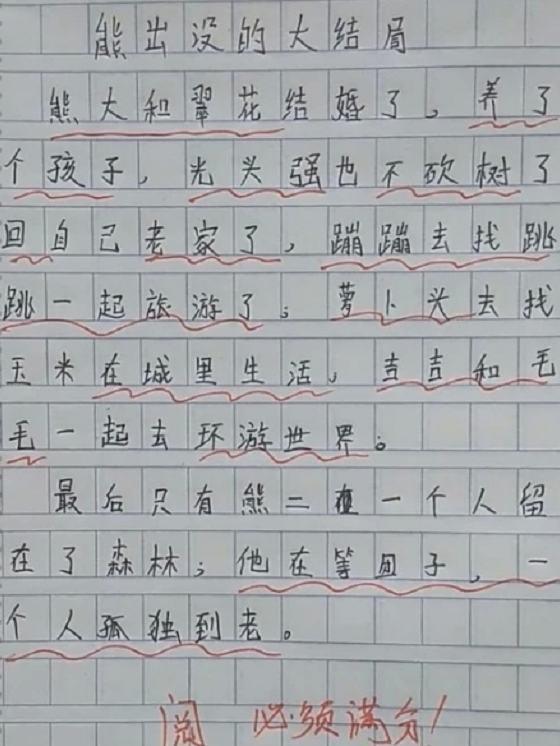 熊出没的大结局
熊大和翠花结婚了，养了
个孩子，光头强也不砍树了
回自己老家了，蹦蹦去找跳
跳一起旅游了；萝卜头去找
玉米在城里生活，吉吉和毛
毛一起去环游世界。
最后只有熊二在一个人留
在了森林；他在等团子，一
个人孤独到老。
阅 必须满分！